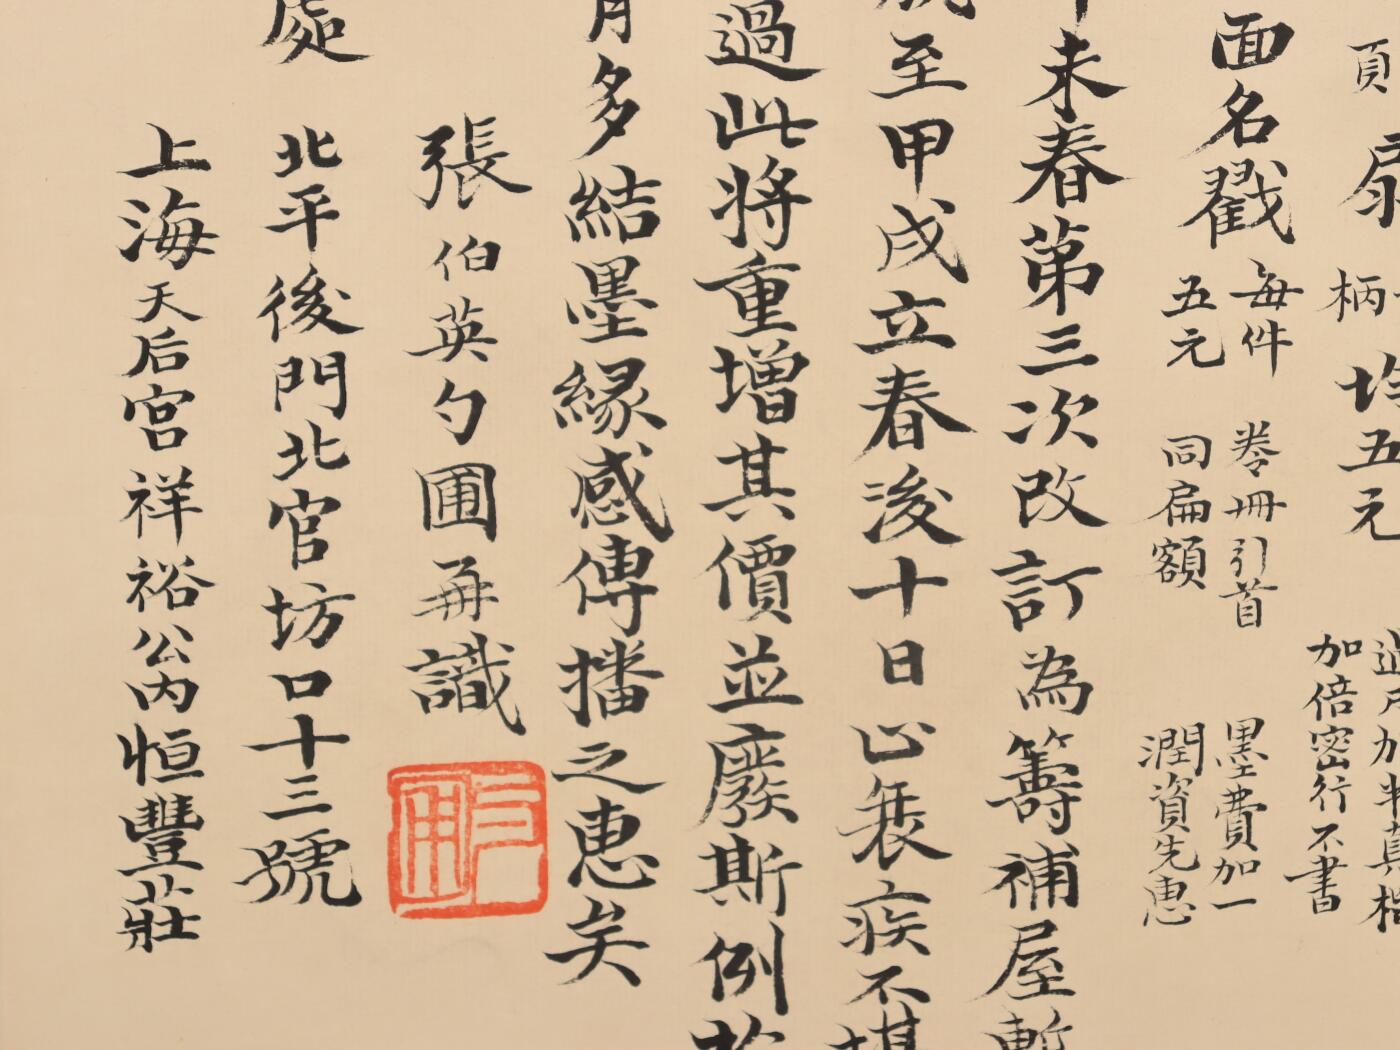 頁 扇 柄 均五元
加倍密行不書
面名戳 每件五元
卷册引首同扁額
墨費加一潤資先惠
未春第三次改訂為籌補屋暫
至甲戌立春後十日止衰疾不堪
過此將重增其價並廢斯例
多結墨緣感傳播之惠矣
張伯英勺圃再識
處
北平後門北官坊口十三號
上海天后宮祥裕公內恒豐莊